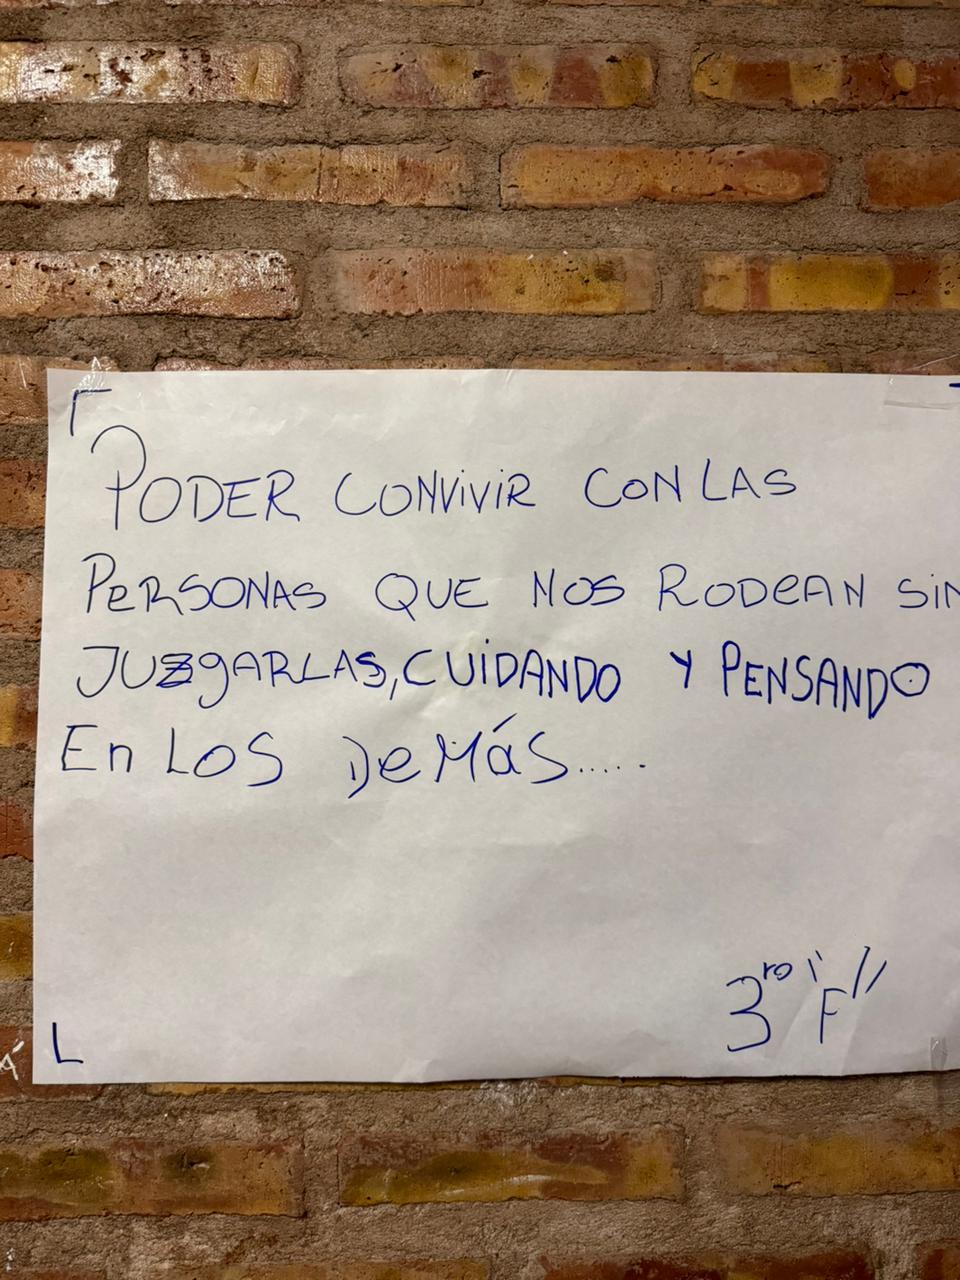 PODER CONVIVIR CON LAS
PERSONAS QUE NOS RODEAN SIN
JUZGARLAS, CUIDANDO Y PENSANDO
EN LOS DEMÁS.....
3ro "F"